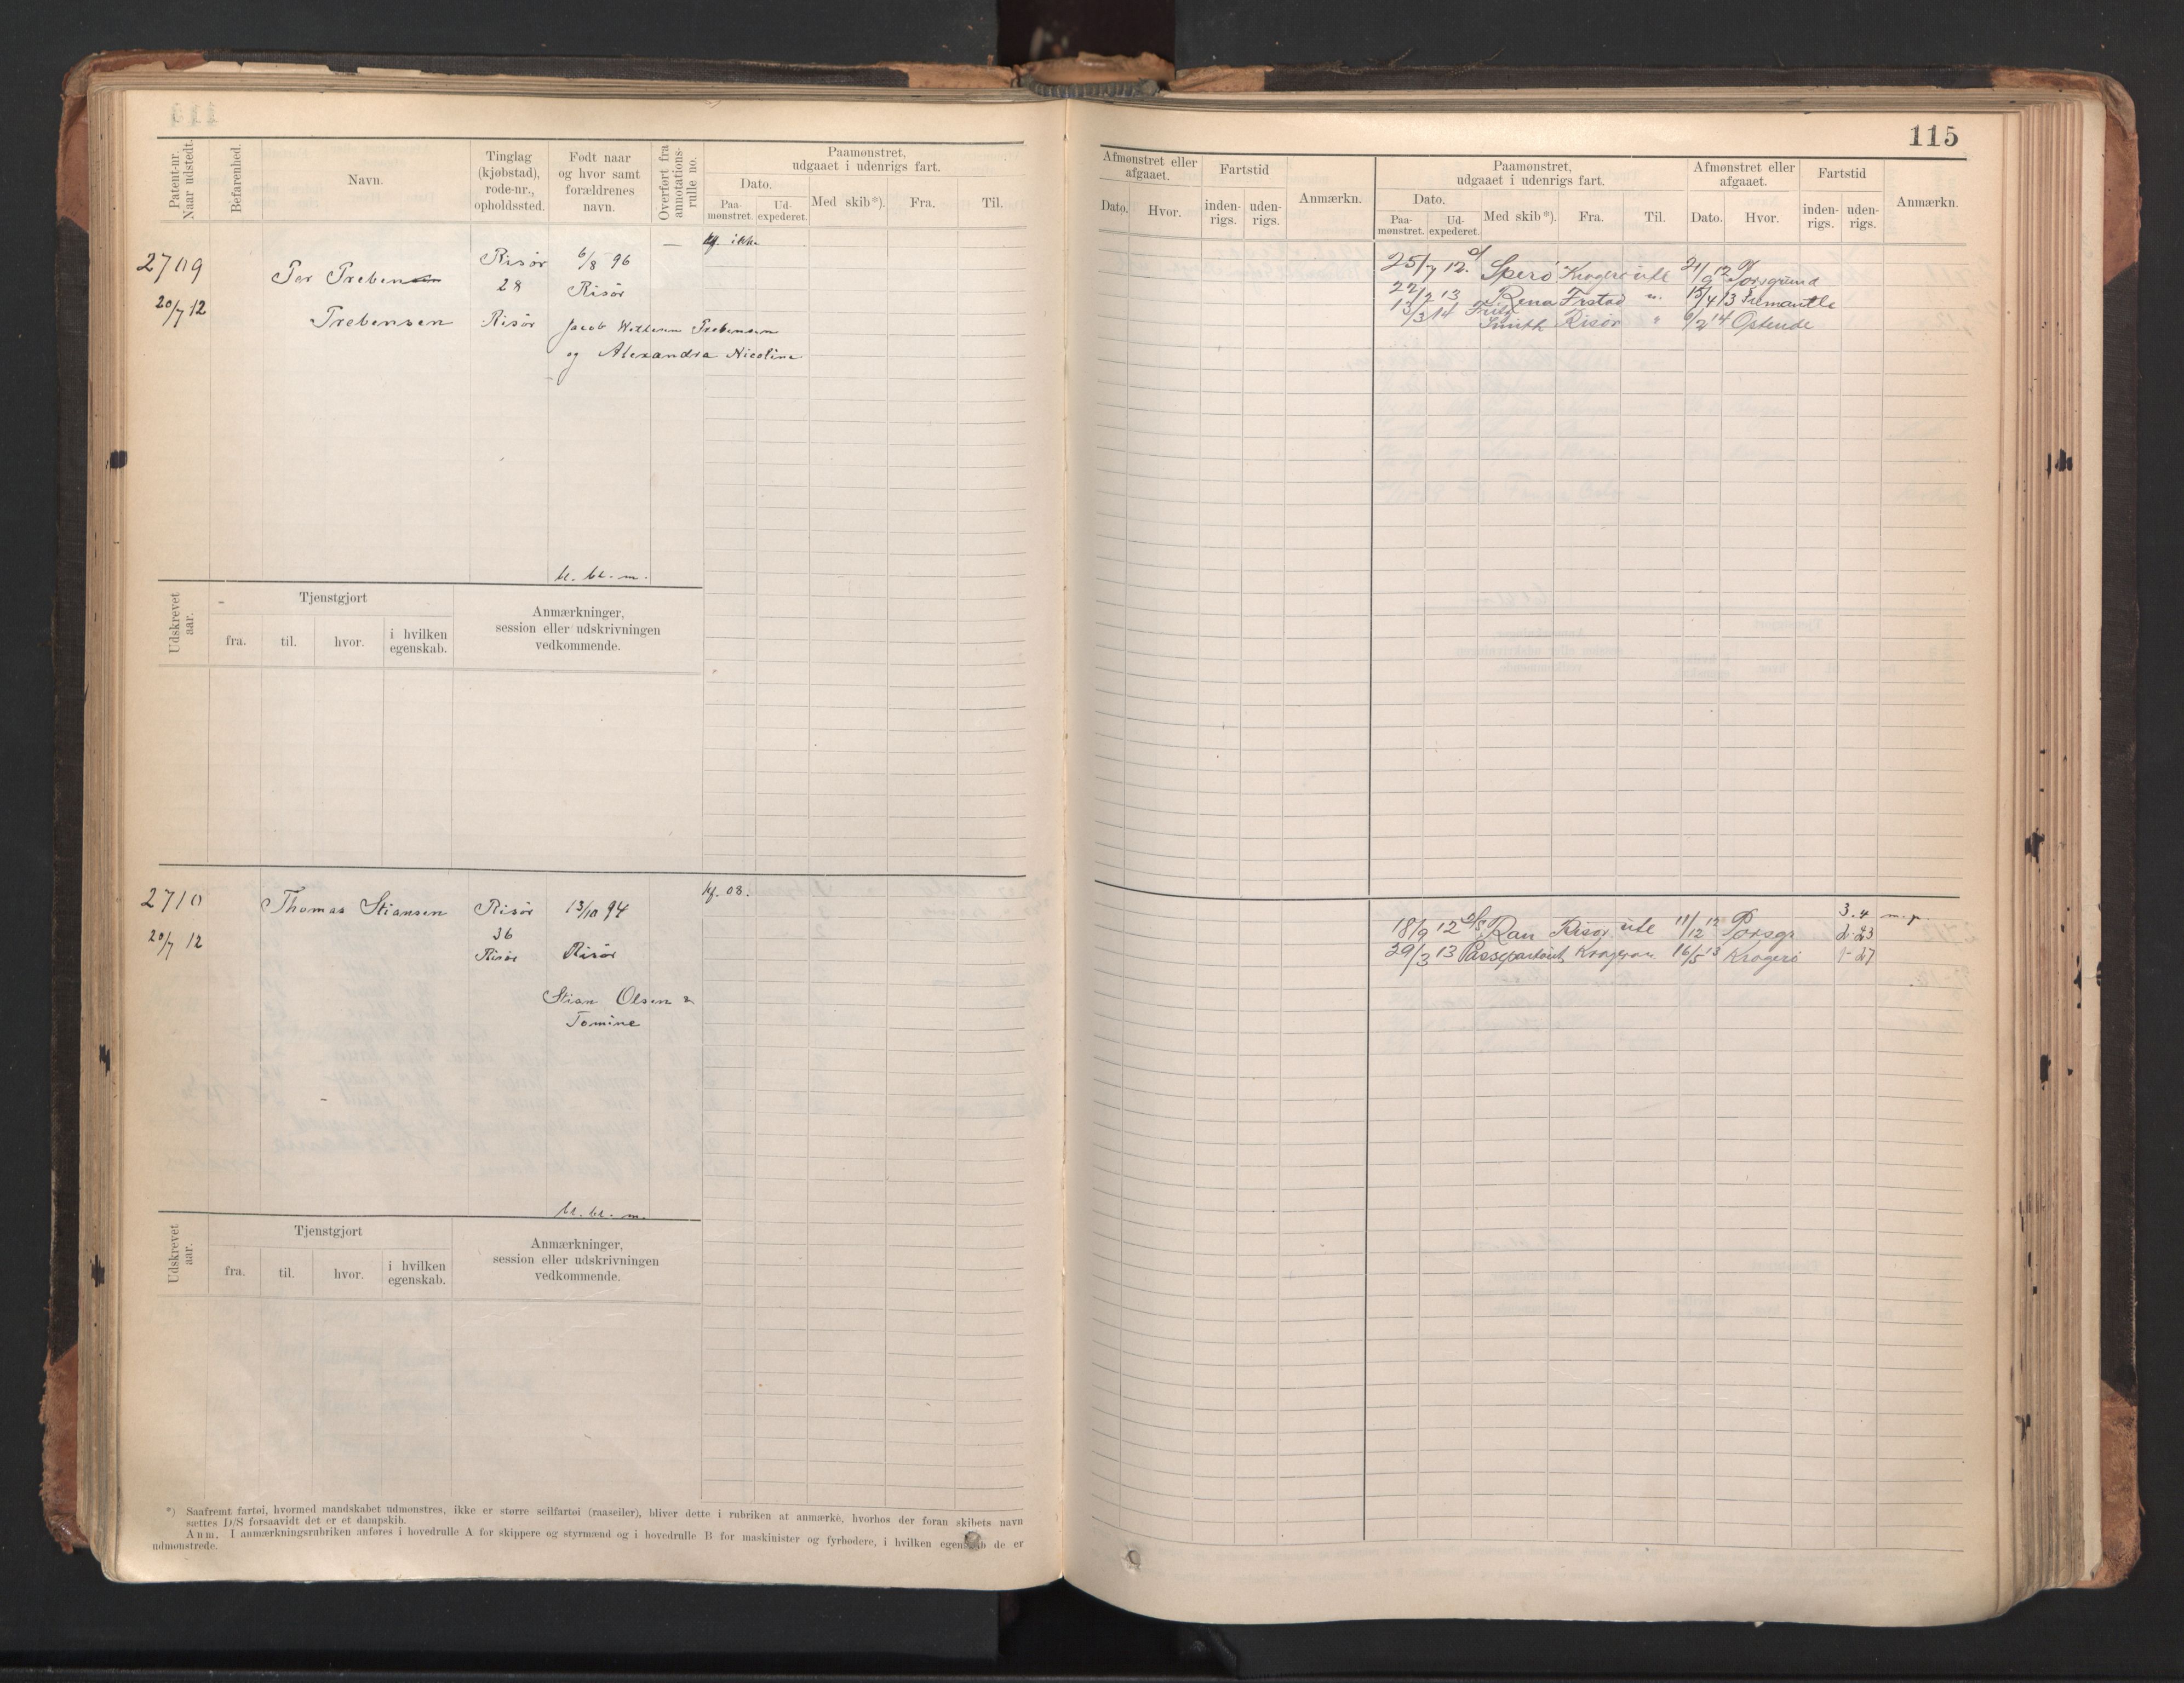 115
Patent-nr. Naar udstedt.
Befarenhed.
Navn.
Tinglag (kjøbstad), rode-nr., opholdssted.
Født naar og hvor samt forældrenes navn.
Overført fra annotations-rulle no.
Paamønstret, udgaaet i udenrigs fart.
Dato.
Paa-mønstret.
Ud-expederet.
Med skib*).
Fra.
Til.
Afmønstret eller afgaaet.
Dato.
Hvor.
Fartstid
inden-rigs.
uden-rigs.
Anmærkn.
Paamønstret, udgaaet i udenrigs fart.
Dato.
Paa-mønstret.
Ud-expederet.
Med skib*).
Fra.
Til.
Afmønstret eller afgaaet.
Dato.
Hvor.
Fartstid
inden-rigs.
uden-rigs.
Anmærkn.
2709
20/7 12
Per Preben
Prebensen
Risör
28
Risör
6/8 96
Risör
Jacob Wilhelm Prebensen
og Alexandra Nicoline
— ikke
bl. bl. m.
25/7 12. Sperö Kragerö ute 21/9 12 Porsgrund
22/2 13 Rena Frstad 15/4 13 Fremantle
13/3 14 Smith Risör " 6/2 14 Ostende
Udskrevet aar.
Tjenstgjort
fra.
til.
hvor.
i hvilken egenskab.
Anmærkninger, session eller udskrivningen vedkommende.
2710
20/7 12
Thomas Stiansen
Risör
36
Risör
13/10 94
Risör
Stian Olsen &
Tomine
kf. 08.
bl. bl. m.
3. 4 m. p.
18/9 12 D/S Ran Risör ute 11/12 12 Porsgr 2-23
29/3 13 Passepartout Kragerö 16/5 13 Kragerö 1-27
Udskrevet aar.
Tjenstgjort
fra.
til.
hvor.
i hvilken egenskab.
Anmærkninger, session eller udskrivningen vedkommende.
*) Saafremt fartøi, hvormed mandskabet udmønstres, ikke er større seilfartøi (raaseiler), bliver dette i rubriken at anmærke, hvorhos der foran skibets navn
sættes D/S forsaavidt det er et dampskib.
Anm. I anmærkningsrubriken anføres i hovedrulle A for skippere og styrmænd og i hovedrulle B for maskinister og fyrbødere, i hvilken egenskab de er
udmønstrede.